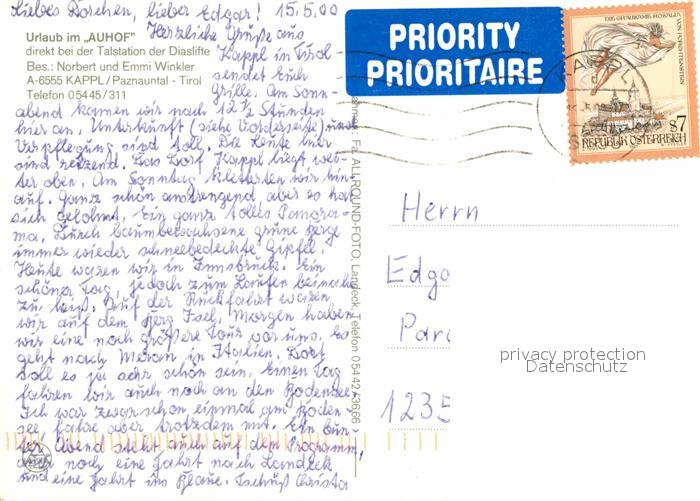 Liebes Dorchen, lieber Edgar! 15.5.00
Herzliche Grüße aus
Kappl in Tirol
sendet Euch
Grille. Am Sonn-
abend kamen wir nach 12½ Stunden
hier an. Unterkunft (siehe Vorderseite) und
Verpflegung sind toll. Die Leute hier
sind reizend. Das Dorf Kappl liegt wei-
ter oben. Am Sonntag kletterten wir hin-
auf. Ganz schön anstrengend, aber es hat
sich gelohnt. Ein ganz tolles Panora-
ma. Durch baumbewachsene grüne Berge
immer wieder schneebedeckte Gipfel.
Heute waren wir in Innsbruck. Ein
schöner Tag, jedoch zum Laufen beinahe
zu heiß. Auf der Rückfahrt waren
wir auf dem Berg Isel. Morgen haben
wir eine noch größere Tour vor uns. Es
geht nach Meran in Italien. Dort
soll es ja sehr schön sein. Einen Tag
fahren wir auch noch an den Bodensee.
Ich war zwar schon einmal am Boden-
see, fahre aber trotzdem mit. Ein bun-
ter Abend steht auch auf dem Programm,
noch eine Fahrt nach Landeck
und eine Fahrt ins Blaue. Tschüß Christa
Urlaub im „AUHOF"
direkt bei der Talstation der Diaslifte
Bes.: Norbert und Emmi Winkler
A-6555 KAPPL/Paznauntal - Tirol
Telefon 05445/311
Fa. ALLROUND-FOTO, Landeck, Telefon 05442/3666
PRIORITY
PRIORITAIRE
DIE GRAUSAME ROSALIA
VON FORCHTENSTEIN
S7
REPUBLIK ÖSTERREICH
KAPPL
Herrn
Edga
Para
1235
privacy protection
Datenschutz